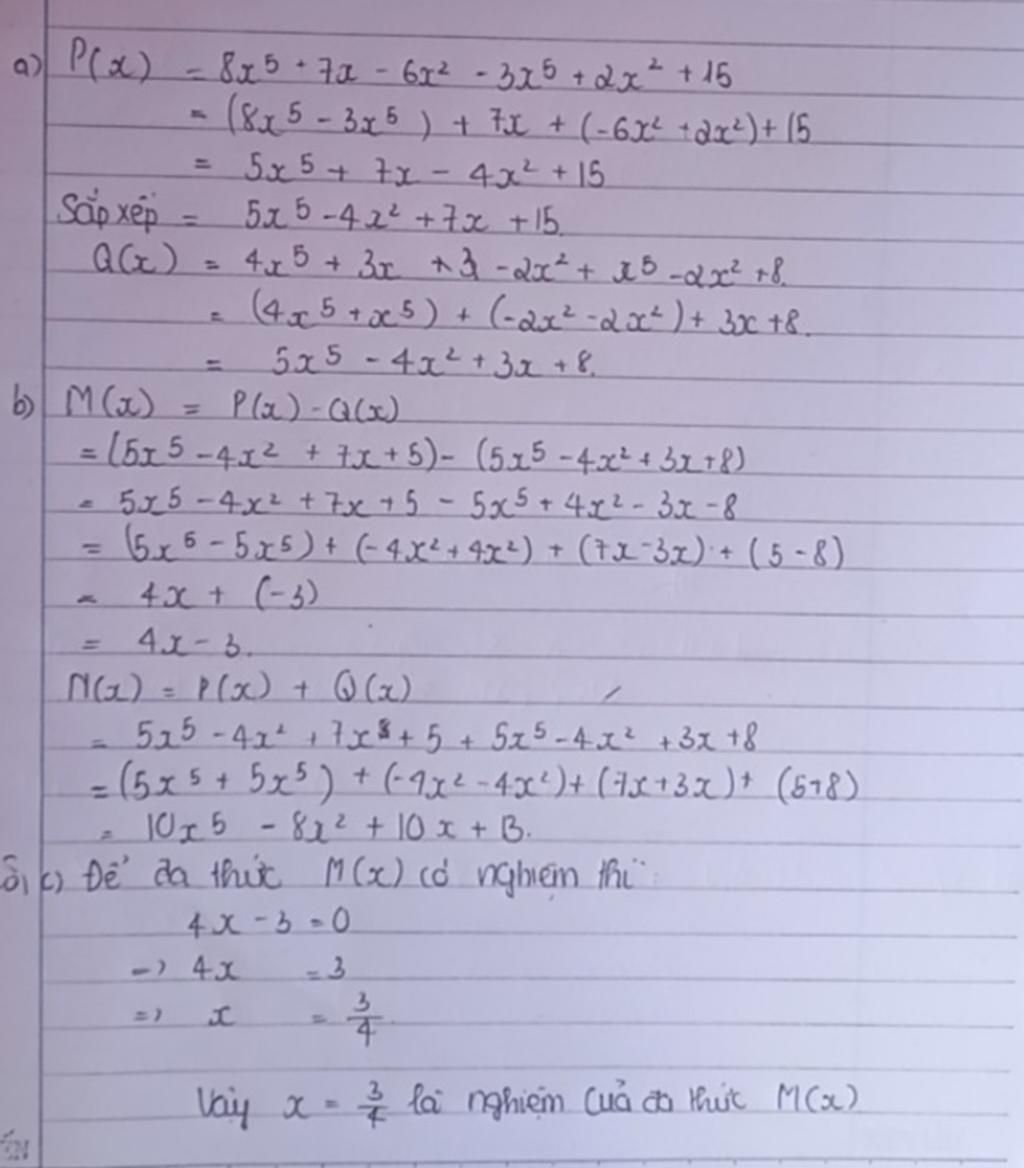 a) P(x) = 8x⁵ + 7x - 6x² - 3x⁵ + 2x² + 15
= (8x⁵ - 3x⁵) + 7x + (-6x² + 2x²) + 15
= 5x⁵ + 7x - 4x² + 15
Sắp xếp = 5x⁵ - 4x² + 7x + 15.
Q(x) = 4x⁵ + 3x - 2x² + x⁵ - 2x² + 8.
= (4x⁵ + x⁵) + (-2x² - 2x²) + 3x + 8.
= 5x⁵ - 4x² + 3x + 8.
b) M(x) = P(x) - Q(x)
= (5x⁵ - 4x² + 7x + 5) - (5x⁵ - 4x² + 3x + 8)
= 5x⁵ - 4x² + 7x + 5 - 5x⁵ + 4x² - 3x - 8
= (5x⁵ - 5x⁵) + (-4x² + 4x²) + (7x - 3x) + (5 - 8)
= 4x + (-3)
= 4x - 3.
N(x) = P(x) + Q(x)
= 5x⁵ - 4x² + 7x + 5 + 5x⁵ - 4x² + 3x + 8
= (5x⁵ + 5x⁵) + (-4x² - 4x²) + (7x + 3x) + (5+8)
= 10x⁵ - 8x² + 10x + 13.
c) Để đa thức M(x) có nghiệm thì
4x - 3 = 0
=> 4x = 3
=> x = 3/4
Vậy x = 3/4 là nghiệm của đa thức M(x)